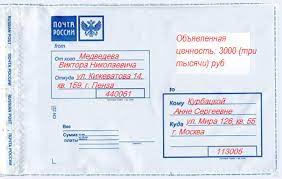 ПОЧТА
РОССИИ
Объявленная
ценность: 3000 (три
тысячи) руб
from
От кого Медведева
Виктора Николаевича
Откуда ул. Кижеватова 14,
кв. 159, г. Пенза
440061
to
Кому Курбацкой
Анне Сергеевне
Куда ул. Мира 126, кв. 55
г. Москва
113005
Вес
Сумма
платы
ПОЧТА РОССИИ